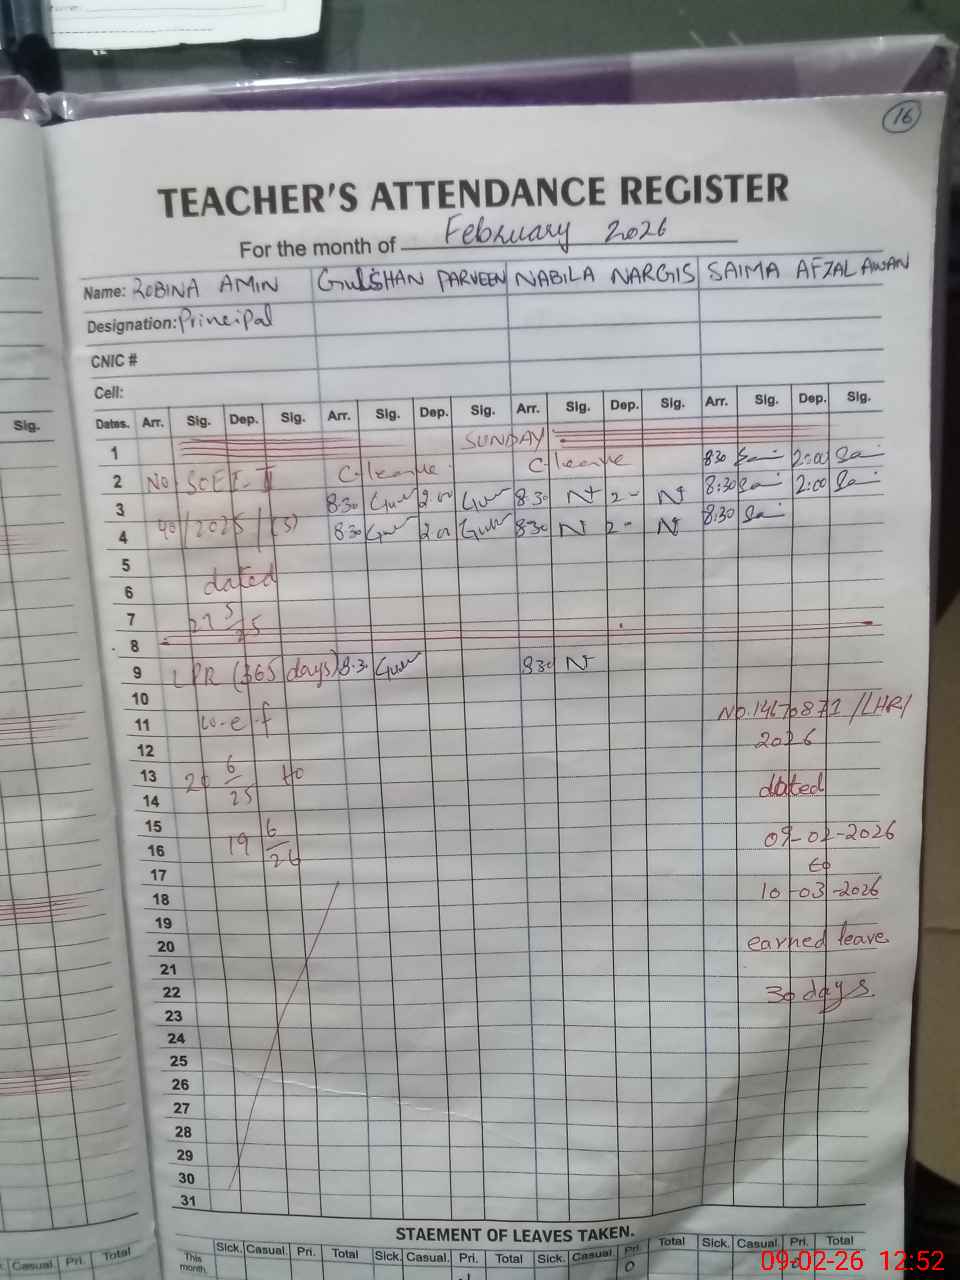 16
TEACHER'S ATTENDANCE REGISTER
For the month of February 2026
Name: ROBINA AMIN GULSHAN PARVEEN NABILA NARGIS SAIMA AFZAL AWAN
Designation: Principal
CNIC #
Cell:
Sig.
Dates. Arr. Sig. Dep. Sig. Arr. Sig. Dep. Sig. Arr. Sig. Dep. Sig. Arr. Sig. Dep. Sig.
1 SUNDAY
2 No C-leave C-leave 8:30 2:00
3 8:30 2 00 8:30 N 2- N 8:30 2:00
4 40/2025/(5) 8:30 2 00 8:30 N 2- N 8:30
5
6 dated
7 27 5/25
8
9 LPR (365 days) 8:3 8:30 N
10
11 w-e-f No.14670871/LHR/
12 2026
13 20 6/25 to dated
14
15 09-02-2026
16 19 6/26 to
17 10-03-2026
18
19 earned leave
20
21 30 days.
22
23
24
25
26
27
28
29
30
31
STAEMENT OF LEAVES TAKEN.
Casual. Pri. Total
This month Sick. Casual. Pri. Total Sick. Casual. Pri. Total Sick. Casual. Pri. Total Sick. Casual. Pri. Total
0
09-02-26 12:52